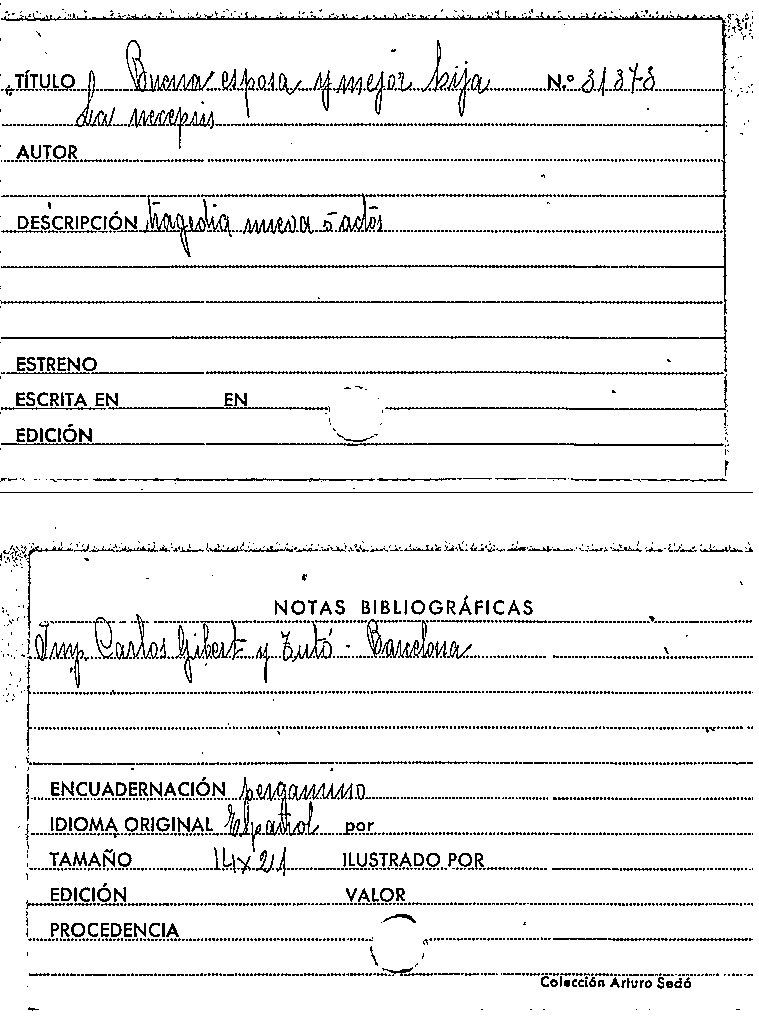 TÍTULO Buena esposa y mejor hija N.º 31378
La necepsis
AUTOR
DESCRIPCIÓN tragedia nueva 5 actos
ESTRENO
ESCRITA EN EN
EDICIÓN
NOTAS BIBLIOGRÁFICAS
Imp Carlos Gibert y Tutó - Barcelona
ENCUADERNACIÓN pergamino
IDIOMA ORIGINAL Español por
TAMAÑO 14x21 ILUSTRADO POR
EDICIÓN VALOR
PROCEDENCIA
Colección Arturo Sedó